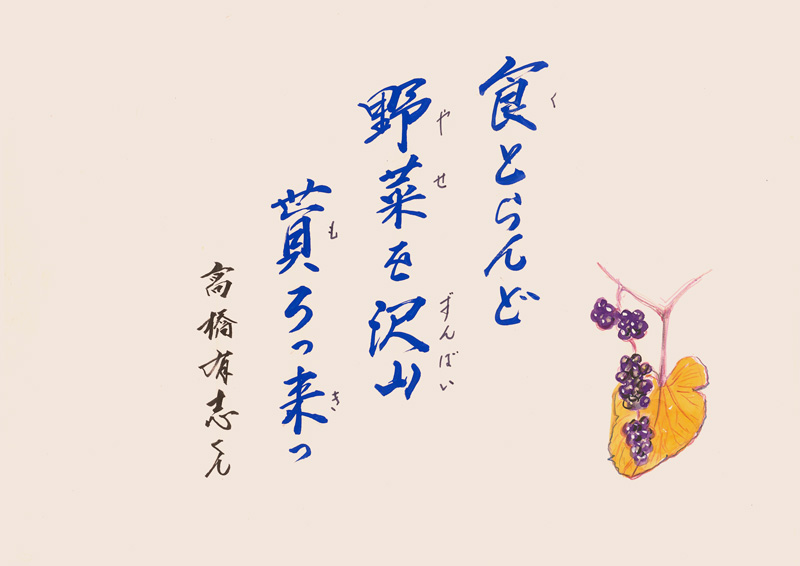 食とらんど
く
野菜を沢山
やせ ずんばい
貰ろっ来っ
も き
高橋有志くん